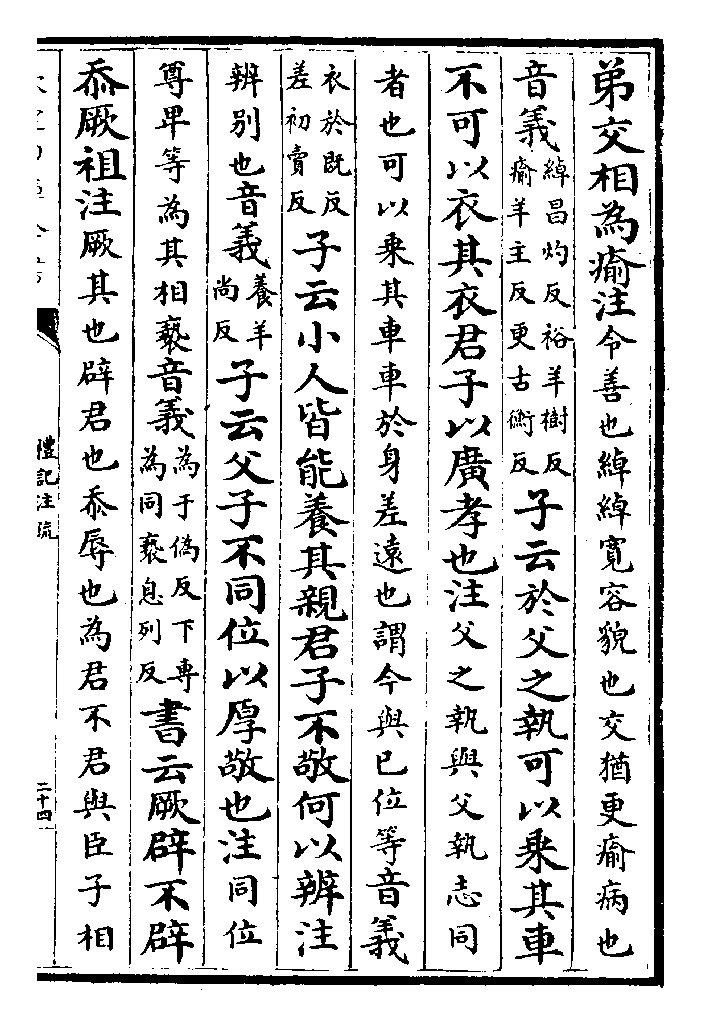 弟交相為瘉注令善也綽綽寛容貌也交猶更瘉病也
音義綽昌灼反裕羊樹反瘉羊主反更古衡反子云於父之執可以乗其車
不可以衣其衣君子以廣孝也注父之執與父執志同
者也可以乗其車車於身差遠也謂今與已位等音義
衣於既反差初賣反子云小人皆能養其親君子不敬何以辨注
辨别也音義養羊尚反子云父子不同位以厚敬也注同位
尊卑等為其相褻音義為于偽反下専為同褻息列反書云厥辟不辟
忝厥祖注厥其也辟君也忝辱也為君不君與臣子相
禮記注疏
二十四